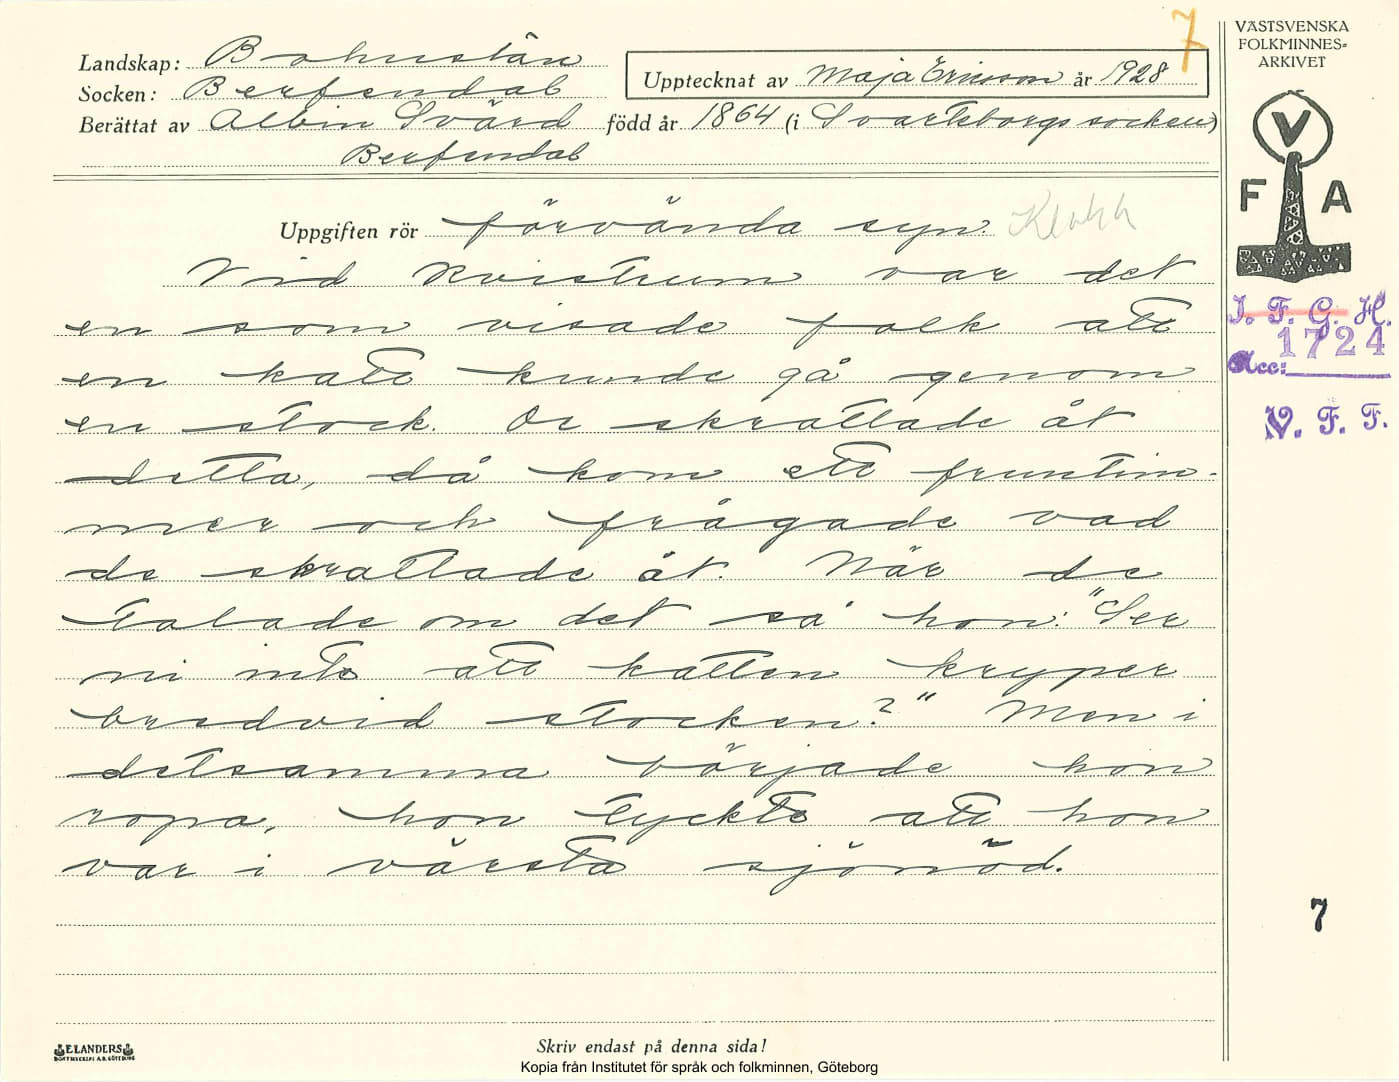 7
VÄSTSVENSKA
FOLKMINNES-
ARKIVET
Landskap: Bohuslän
Socken: Berfendal
Upptecknat av Maja Ericsson år 1928
Berättat av Albin Svärd född år 1864 (i Svarteborgs socken)
Berfendal
V
F A
Uppgiften rör förvända syn.
Vid Kviström var det
en som visade folk att
en katt kunde gå genom
en stock. De skrattade åt
detta, då kom ett fruntim-
mer och frågade vad
de skrattade åt. När de
talade om det sa' hon: "Ser
ni inte att katten kryper
bredvid stocken?" Men i
detsamma började hon
ropa, hon tyckte att hon
var i värsta sjönöd.
I. F. G. H.
1724
Acc:
V. F. F.
7
ELANDERS
BOKTRYCKERI A.B. GÖTEBORG
Skriv endast på denna sida!
Kopia från Institutet för språk och folkminnen, Göteborg